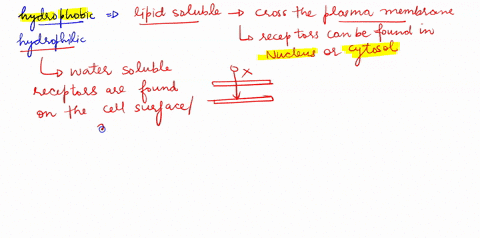 hydrophobic ⇒ lipid soluble → cross the plasma membrane
hydrophilic
↳ receptors can be found in
Nucleus or cytosol
↳ water soluble
receptors are found
on the cell surface/
x